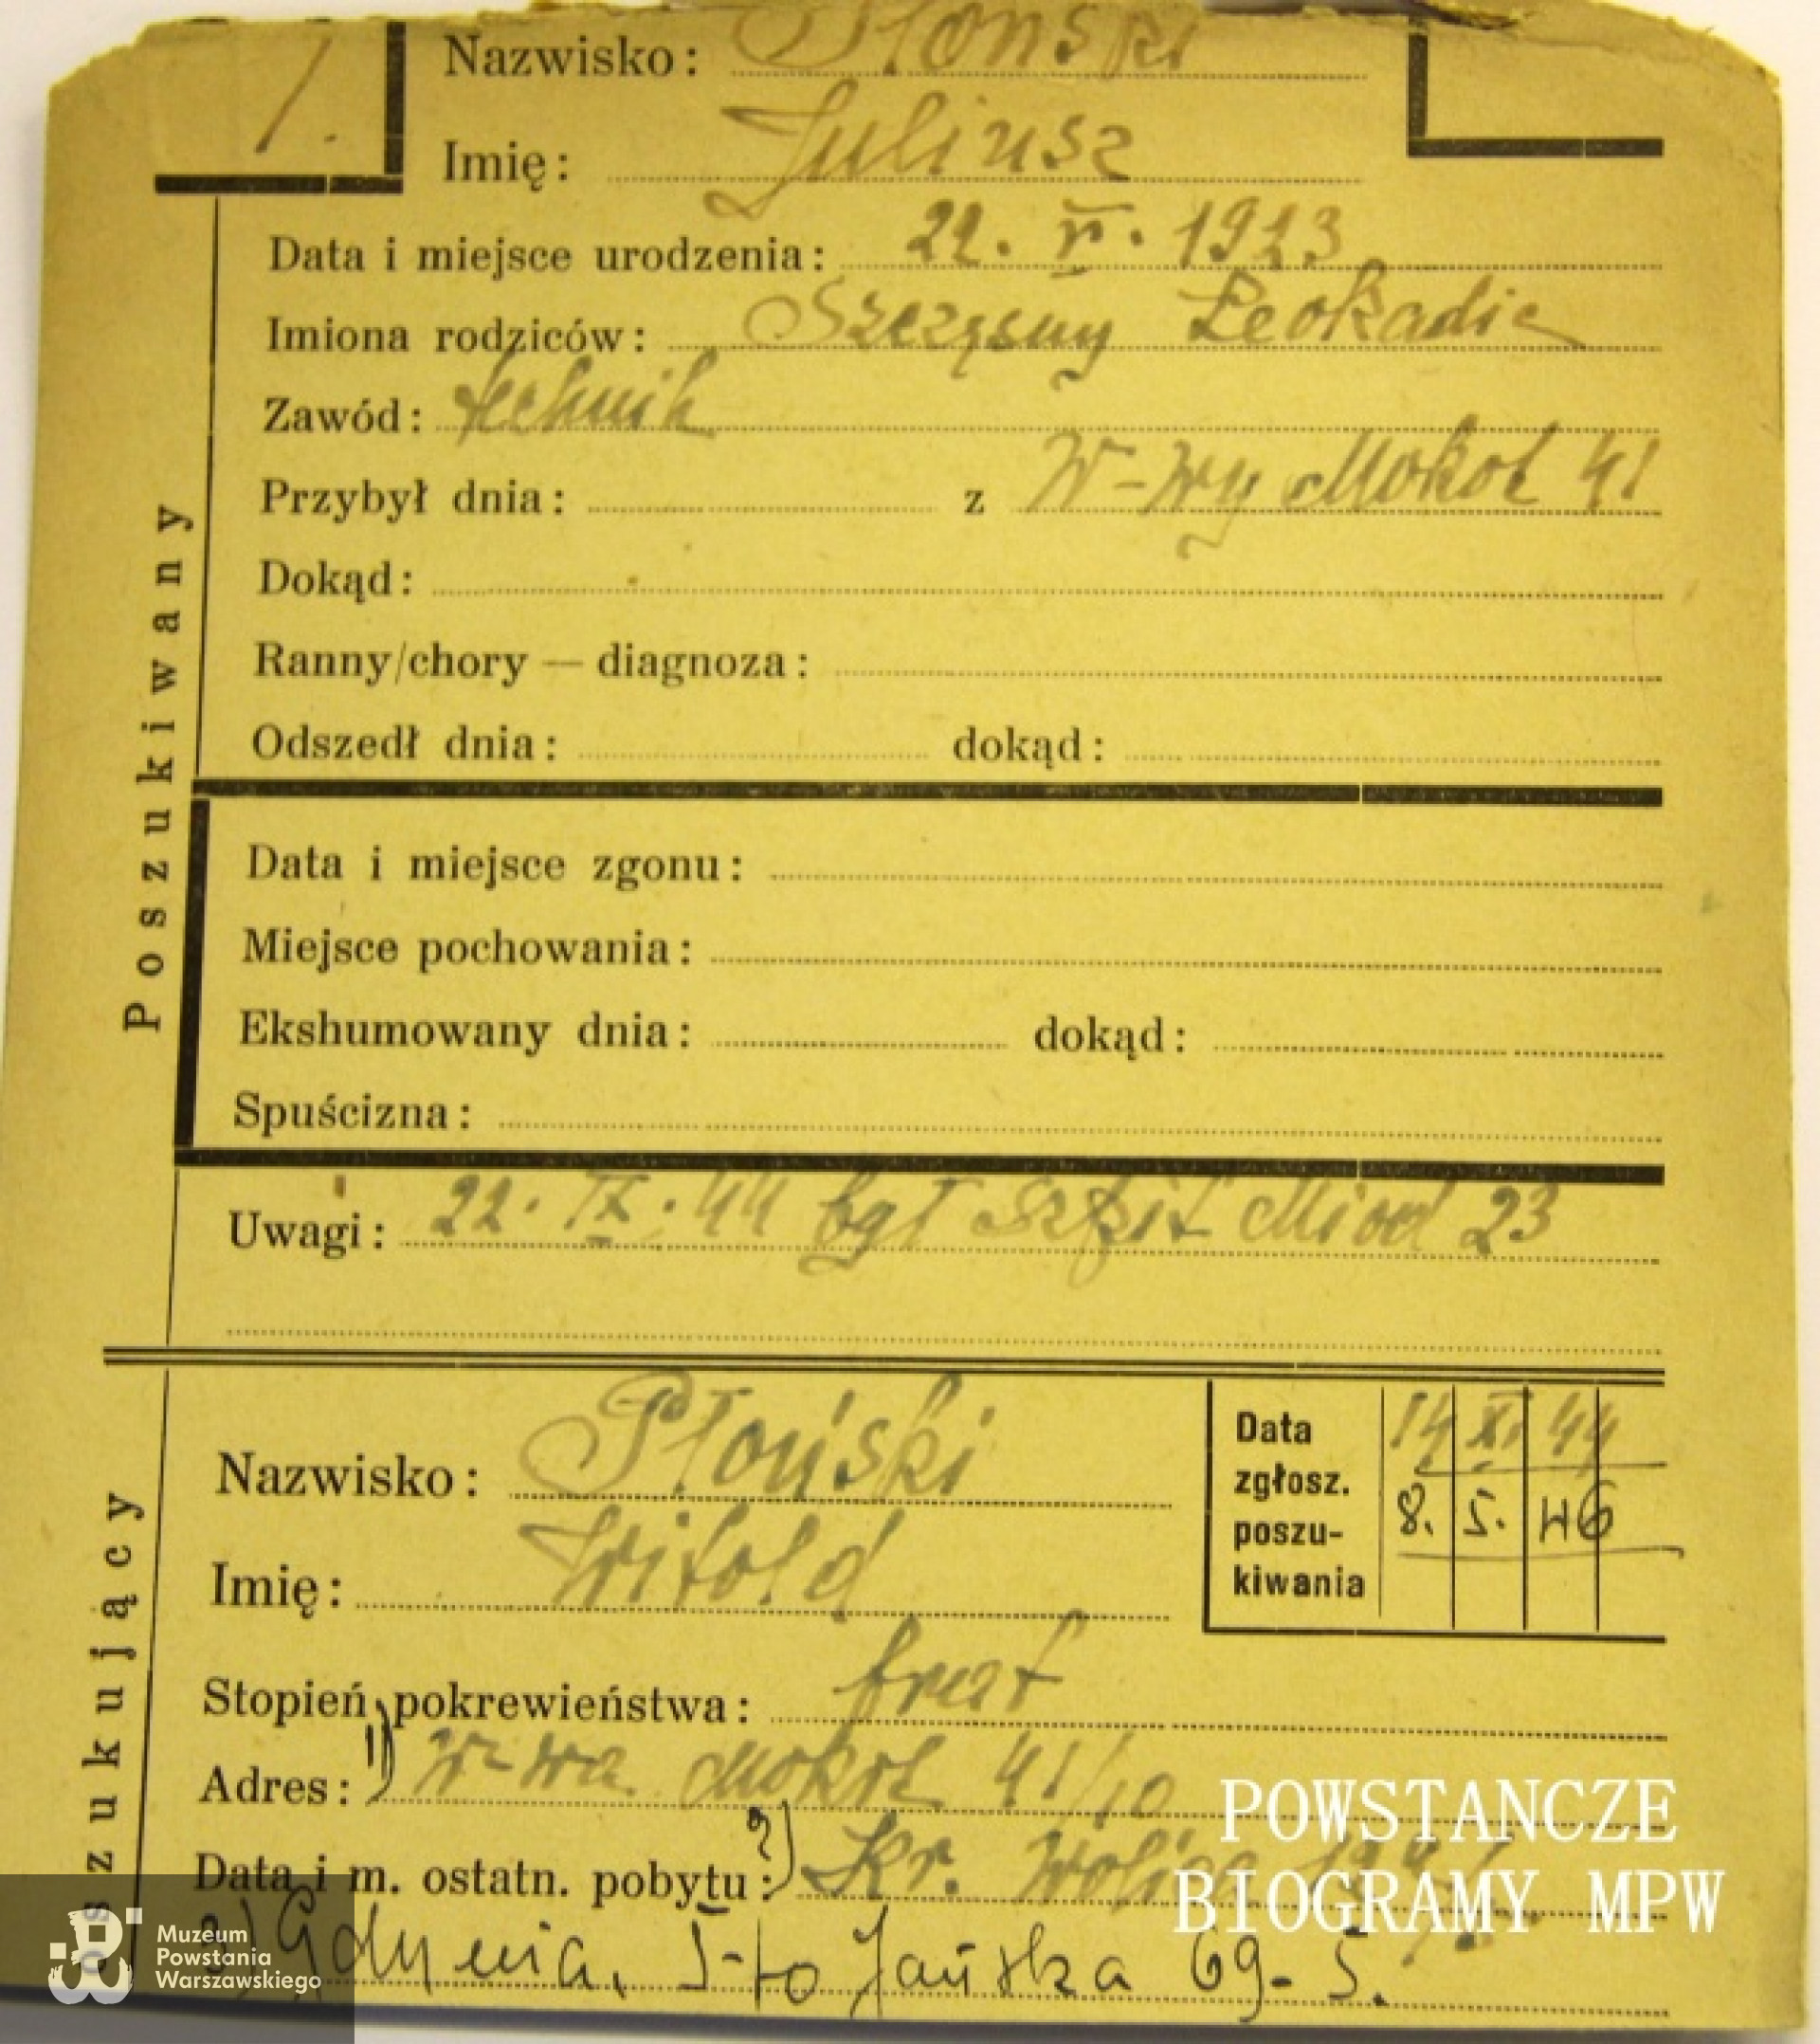 1.
Nazwisko: Płoński
Imię: Juliusz
Data i miejsce urodzenia: 22. V. 1923
Imiona rodziców: Szczęsny Leokadia
Zawód: technik
Przybył dnia: z W-wy Mokot 41
Dokąd:
Ranny/chory — diagnoza:
Odszedł dnia: dokąd:
Poszukiwany
Data i miejsce zgonu:
Miejsce pochowania:
Ekshumowany dnia: dokąd:
Spuścizna:
Uwagi: 22. IX. 44 był Szpit Miod 23
Nazwisko: Płoński
Imię: Witold
Data zgłosz. poszukiwania
14 XI. 44
8. 5. 46
Stopień pokrewieństwa: brat
Adres: 1) W-wa Mokot 41/10
Data i m. ostatn. pobytu: 2) Kr.
3) Gdynia, Ś-to Jańska 69-5.
oszukujący
POWSTAŃCZE
BIOGRAMY MPW
Muzeum
Powstania
Warszawskiego